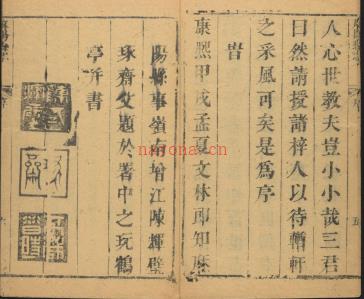 人心世教夫豈小小哉三君
曰然請授諸梓人以待輶軒
之采風可矣是爲序
旹
康熙甲戌孟夏文林郎知麻
陽縣事嶺南增江陳輝璧
琢齋父題於署中之玩鶴
亭并書
nationalxa.cn
五
六